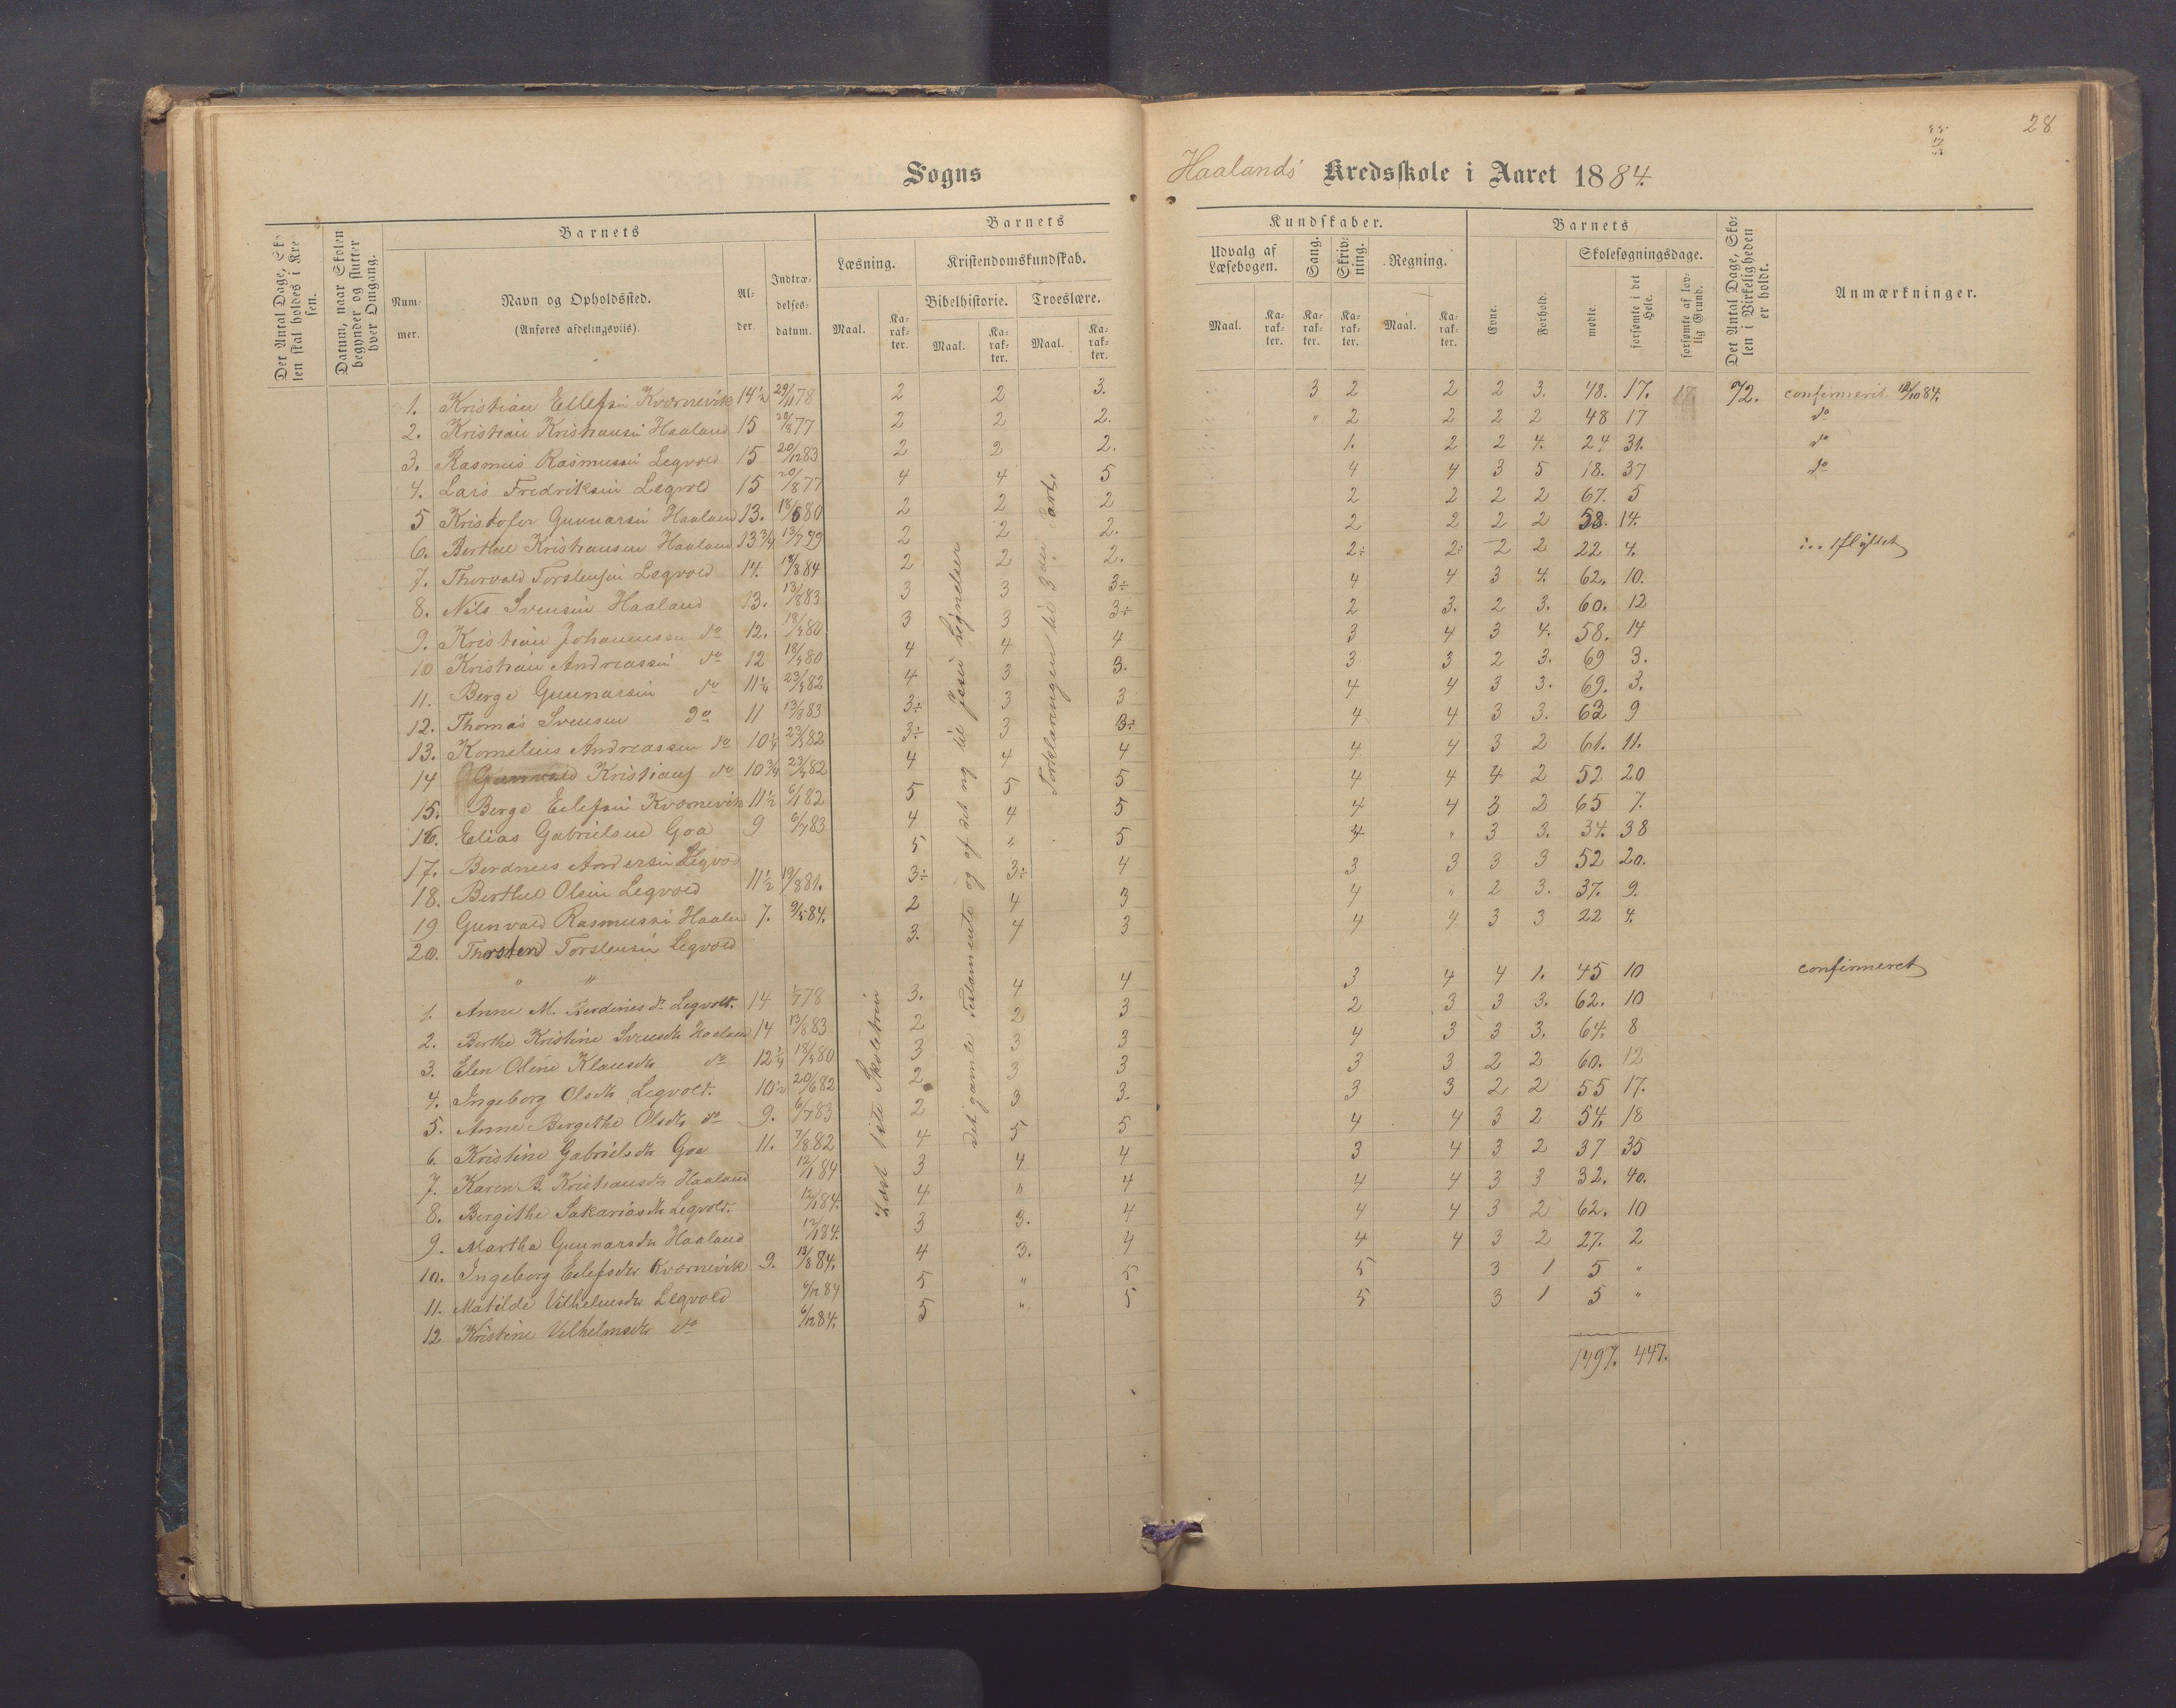 28
Sogns Haalands Kredsskole i Aaret 1884.
Det Antal Dage, Skolen skal holdes i Kredsen.
Datum, naar Skolen begynder og slutter hver Omgang.
Barnets
Nummer.
Navn og Opholdssted.
(Anføres afdelingsviis).
Alder.
Indtrædelsesdatum.
Barnets Kundskaber.
Læsning.
Maal. Karakter.
Kristendomskundskab.
Bibelhistorie. Troeslære.
Maal. Karakter. Maal. Karakter.
Udvalg af Læsebogen. Sang. Skrivning. Regning.
Maal. Karakter. Karakter. Karakter. Maal. Karakter.
Barnets
Evne. Forhold.
Skolesøgningsdage.
mødte. forsømte i det Hele. forsømte af lovlig Grund.
Det Antal Dage, Skolen i Virkeligheden er holdt.
Anmærkninger.
1. Kristian Ellefsen Kvornevik 14½ 29/11 78 2 2 3. 3 2 2 2 3. 48. 17. 72. confirmerit 12/10 84.
2. Kristian Kristiansen Haaland 15 20/8 77 2 2 2. " 2 2 2 2 48 17 do
3. Rasmus Rasmussen Legvold 15 20/12 83 2 2 2. 1. 2 2 4. 24 31. do
4. Lars Fredriksen Legvold 15 20/8 77 4 4 5 4 4 3 5 18. 37 do
5 Kristofer Gunnarsen Haaland 13. 18/5 80 2 2 2 2 2 2 2 67. 5
6. Berthel Kristiansen Haaland 13¾ 13/7 79 2 2 2. 2 2 2 2 58. 14.
7. Thorvald Torstensen Legvold 14. 18/8 84 2 2 2. 2÷ 2÷ 2 2 22 4.
8. Nils Svensen Haaland 13. 13/8 83 3 3 3÷ 4 4 3 4. 62. 10.
9. Kristian Johannessen do 12. 18/5 80 3 3 3÷ 2 3. 2 3. 60. 12
10 Kristian Andreassen do 12 18/5 80 4 4 4 3 4 3 4. 58. 14
11. Berge Gunnarsen do 11¼ 23/5 82 4 3 3. 3 3 2 3. 69 3.
12. Thomas Svensen do 11 13/8 83 3÷ 3 3 4 4 3 3. 69. 3.
13. Kornelius Andreassen do 10¼ 23/5 82 3÷ 3 3÷ 4 4 3 3. 63 9
14 Gunvald Kristians do 10¾ 23/5 82 4 4 4 4 4 3 2 61. 11.
15. Berge Eilefsen Kvornevik 11½ 6/1 82 5 5 5 4 4 4 2 52 20
16. Elias Gabrielsen Goa 9 6/7 83 4 4 5 4 4 3 2 65 7.
17. Berdines Andersen Legvold 5 " 5 4 " 3 3. 34. 38
18. Berthel Olsen Legvold 11½ 19/8 81. 3÷ 3÷ 4 3 3 3 3 52 20.
19 Gunvald Rasmussen Haaland 7. 9/5 84. 2 4 3 4 " 2 3. 37. 9.
20. Thorsten Torstensen Legvold 3. 4 3 4 4 3 3 22 4.
" "
1. Anne M. Berdines dr Legvold. 14 1/7 78 3. 4 4 3 4 4 1. 45 10 confirmeret
2. Berthe Kristine Svensdtr Haaland 14 13/8 83 2 2 3 2 3 3 3. 62. 10
3. Elen Oline Klausdtr do 12¼ 18/5 80 3 3 3 4 3 3 3. 64. 8
4. Ingeborg Olsdtr Legvold. 10½ 20/6 82 2 3 3 3 3 2 2 60. 12
5. Anne Bergithe Olsdtr do 9. 6/7 83 2 3 3. 3 3 2 2 55 17.
6. Kristine Gabrielsdtr Goa 11. 7/8 82 4 5 5 4 4 3 2 54. 18
7. Karen B. Kristiansdtr Haaland 12/1 84 3 4 4 3 4 3 2 37 35
8. Bergithe Sakariasdtr Legvold. 12/1 84. 4 " 4 4 4 3 3 32. 40.
9. Martha Gunnarsdtr Haaland 12/1 84. 3 3. 4 4 4 3 2 62. 10
10. Ingeborg Eilefsdtr Kvornevik 9. 13/8 84. 4 3. 4 4 4 3 2 27. 2
11. Matilde Vilhelmsdtr Legvold 6/12 84 5 " 5 5 3 1 5 "
12 Kristine Vilhelmsdtr do 6/12 84. 5 " 5 5 3 1 5 "
1497. 447.
Læst 1ste Skoletrin
det gamle Testamente og af det ny til Jesu Lignelser
Forklaringen til 3die Part.